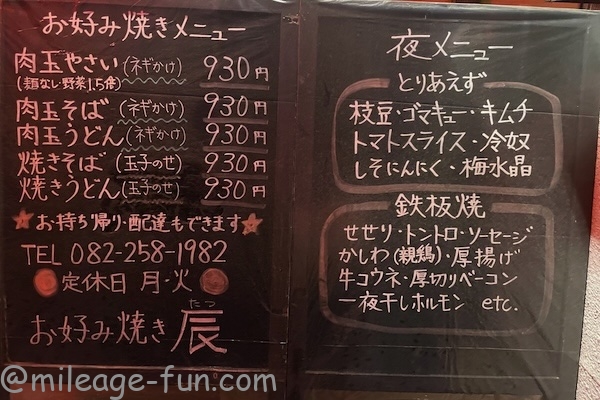 お好み焼きメニュー
肉玉やさい(ネギかけ) 930円
(麺なし・野菜1.5倍)
肉玉そば(ネギかけ) 930円
肉玉うどん(ネギかけ) 930円
焼きそば(玉子のせ) 930円
焼きうどん(玉子のせ) 930円
★お持ち帰り・配達もできます★
TEL 082-258-1982
定休日 月・火
たつ
お好み焼き 辰
夜メニュー
とりあえず
枝豆・ゴマキュー・キムチ
トマトスライス・冷奴
しそにんにく・梅水晶
鉄板焼
せせり・トントロ・ソーセージ
かしわ(親鶏)・厚揚げ
牛コウネ・厚切りベーコン
一夜干しホルモン etc.
@mileage-fun.com